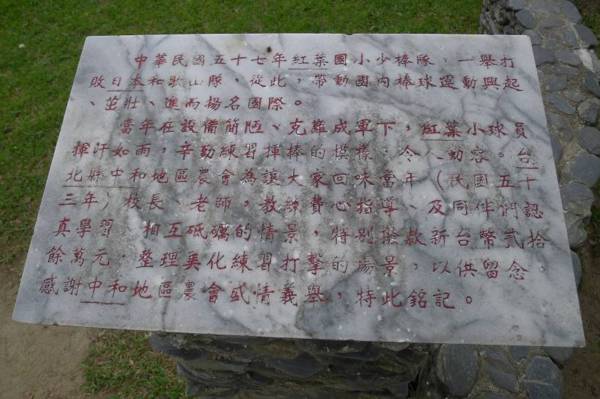 中華民國五十七年紅葉國小少棒隊，一舉打
敗日本和歌山隊，從此，帶動國內棒球運動興起
、茁壯、進而揚名國際。
當年在設備簡陋、克難成軍下，紅葉小球員
揮汗如雨，辛勤練習揮棒的模樣，令人動容。台
北縣中和地區農會為讓大家回味當年（民國五十
三年）校長、老師，教練費心指導、及同伴們認
真學習、相互砥礪的情景，特別捐款新台幣貳拾
餘萬元，整理美化練習打擊的場景，以供留念
感謝中和地區農會盛情義舉，特此銘記。